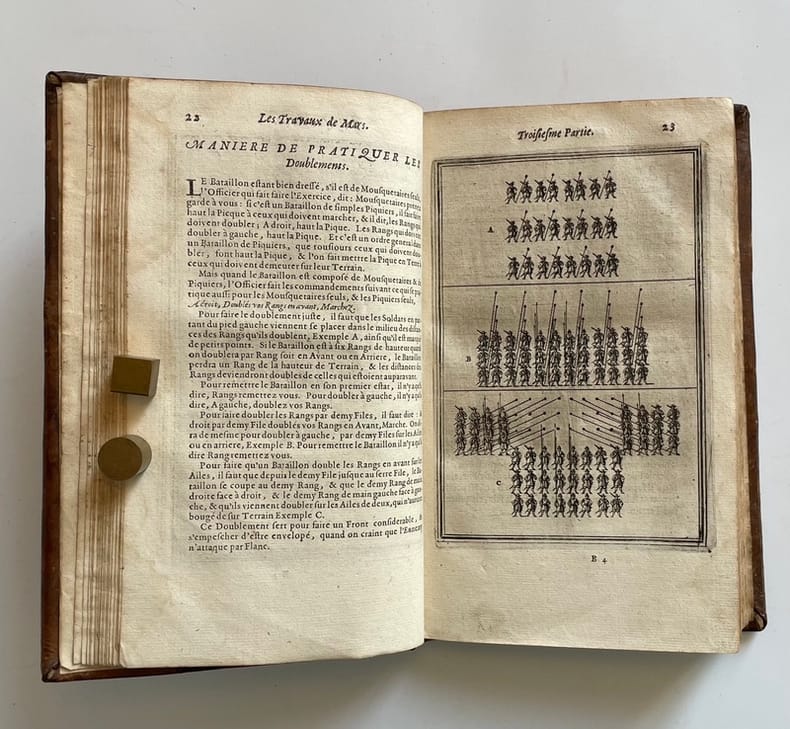 22
Les Travaux de Mars.
MANIERE DE PRATIQUER LES
Doublements.
LE Bataillon estant bien dressé, s'il est de Mousquetaires seuls,
l'Officier qui fait faire l'Exercice, dit: Mousquetaires prenez
garde à vous: si c'est un Bataillon de simples Piquiers, il fait faire
haut la Picque à ceux qui doivent marcher, & il dit, les Rangs qui
doivent doubler; A droit, haut la Pique. Les Rangs qui doivent
doubler à gauche, haut la Pique. Et c'est un ordre general dans
un Bataillon de Piquiers, que tousiours ceux qui doivent dou-
bler, font haut la Pique, & l'on fait mettre la Pique en Terre à
ceux qui doivent demeurer sur leur Terrain.
Mais quand le Bataillon est composé de Mousquetaires & de
Piquiers, l'Officier fait les commandements suivant ce qui se pra-
tique aussi pour les Mousquetaires seuls, & les Piquiers seuls,
A droit, Doublés vos Rangs en avant, Marchez.
Pour faire le doublement juste, il faut que les Soldats en par-
tant du pied gauche viennent se placer dans le milieu des distan-
ces des Rangs qu'ils doublent, Exemple A, ainsi qu'il est marqué
de petits points. Si le Bataillon est à six Rangs de hauteur quand
on doublera par Rang soit en Avant ou en Arriere, le Bataillon
perdra un Rang de la hauteur de Terrain, & les distances des
Rangs deviendront doubles de celles qui estoient auparavant.
Pour remettre le Bataillon en son premier estat, il n'y a qu'à
dire, Rangs remettez vous. Pour doubler à gauche, il n'y a qu'à
dire, A gauche, doublez vos Rangs.
Pour faire doubler les Rangs par demy Files, il faut dire: à
droit par demy File doublés vos Rangs en Avant, Marche. On di-
ra de mesme pour doubler à gauche, par demy Files sur les Ailes
ou en arriere, Exemple B. Pour remettre le Bataillon il n'y a qu'à
dire Rang remettez vous.
Pour faire qu'un Bataillon double les Rangs en avant sur les
Ailes, il faut que depuis le demy File jusque au serre File, le Ba-
taillon se coupe au demy Rang, & que le demy Rang de main
droite face à droit, & le demy Rang de main gauche face à gau-
che, & qu'ils viennent doubler sur les Ailes de deux, qui n'auront
bougé de sur Terrain Exemple C.
Ce Doublement sert pour faire un Front considerable, &
s'empescher d'estre envelopé, quand on craint que l'Ennemy
n'attaque par Flanc.
Troisiesme Partie.
23
A
B
C
B 4